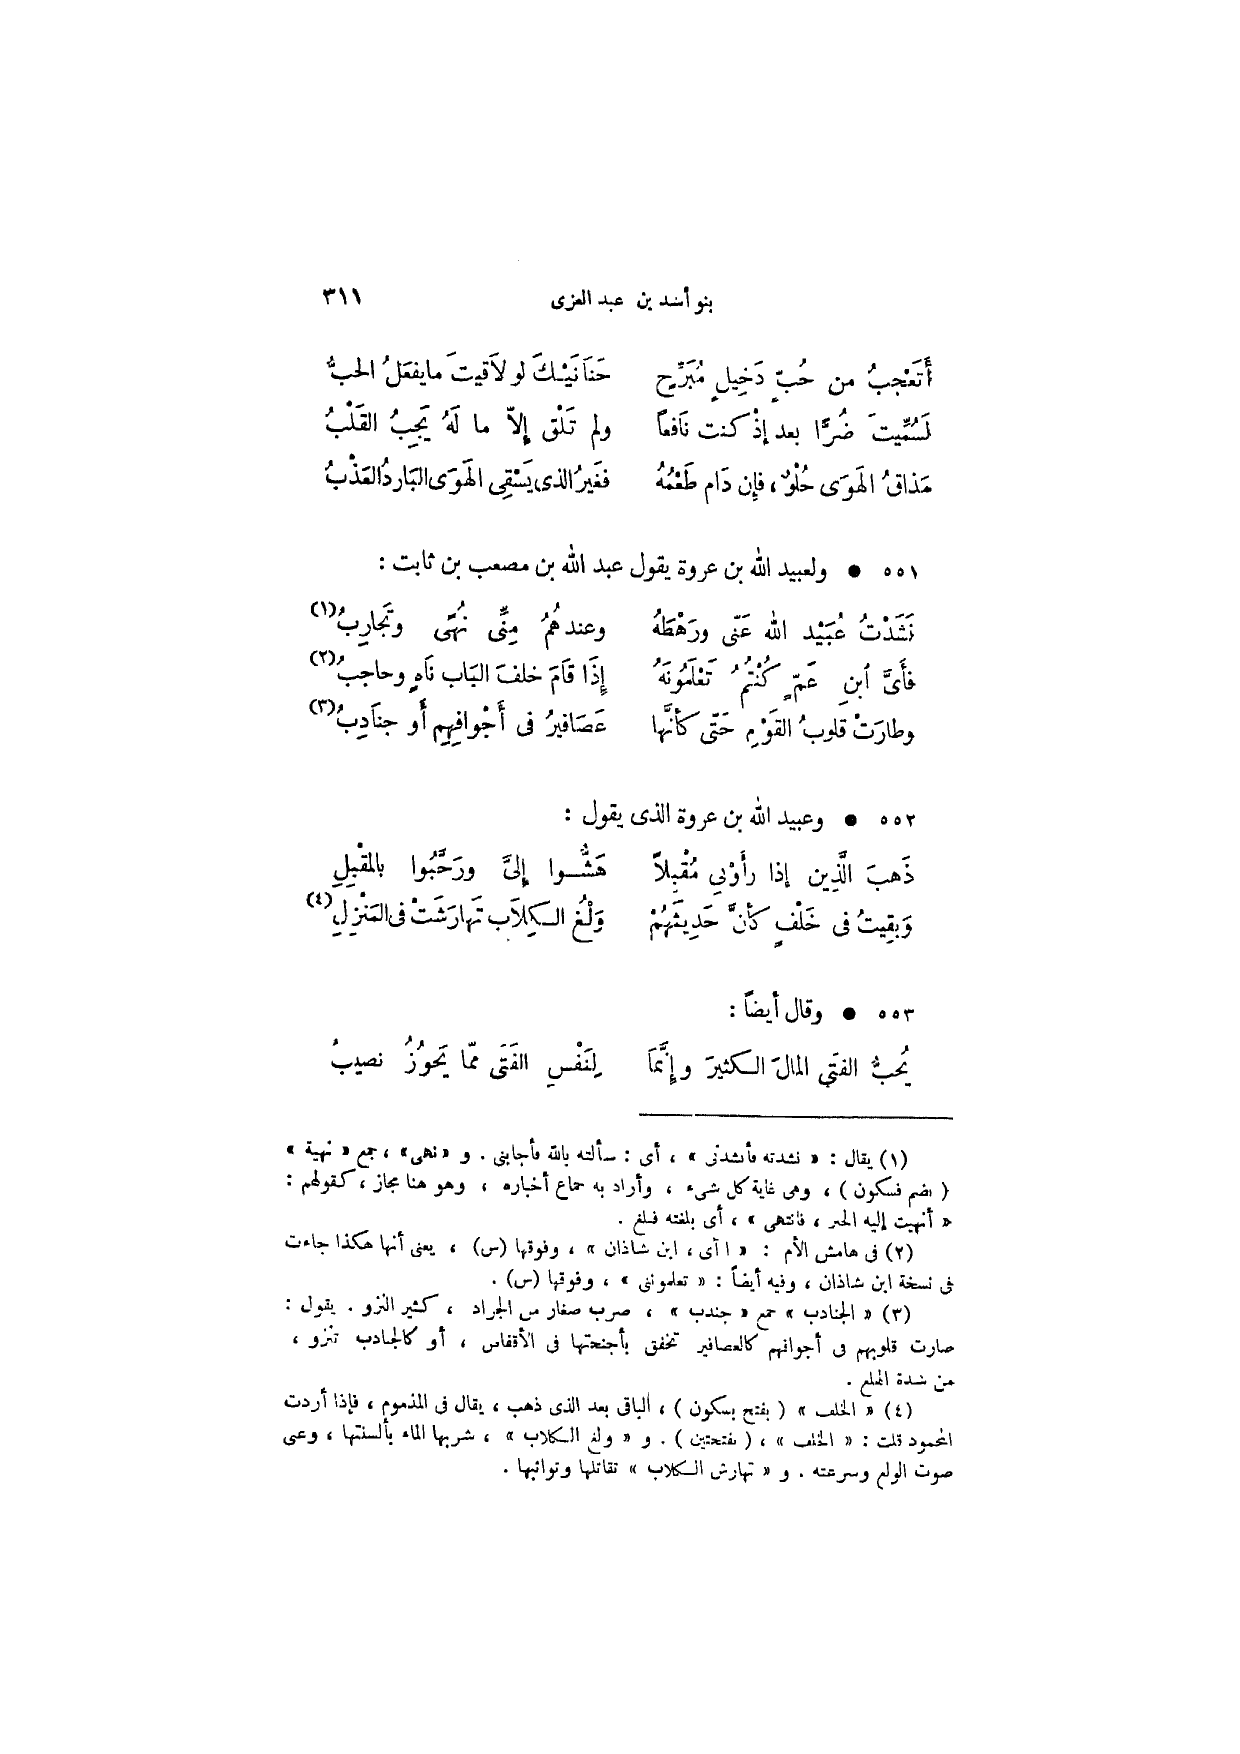 بنو أسد بن عبد العزى ٣١١
أَتَعْجبُ من حُبٍّ دَخِيلٍ مُبَرِّحٍ حَنَانَيْكَ لو لاَقيتَ ما يفعَلُ الحبُّ
لَسُمِّيتَ ضُرًّا بعد إذْ كنت نَافعاً ولم تَلْق إلاّ ما لَهُ يَجِبُ القَلْبُ
مَذاقُ الهَوَى حُلْوٌ، فإن دَام طَعْمُهُ فغَيرُ الذى يَسْقِى الهَوَى البَاردُ العَذْبُ
٥٥١ ● ولعبيد الله بن عروة يقول عبد الله بن مصعب بن ثابت :
نَشَدْتُ عُبَيْد الله عَنّى ورَهْطَهُ وعندهُمُ مِنِّى نُهًى وتَجَارِبُ(١)
فأَىَّ ابنِ عَمٍّ كُنْتُمُ تَعْلَمُونَهُ إِذَا قَامَ خلفَ البَاب نَاهٍ وحاجبُ(٢)
وطارَتْ قلوبُ القَوْمِ حَتّى كأنَّها عَصَافيرُ فى أَجْوافِهِم أَو جنَادِبُ(٣)
٥٥٢ ● وعبيد الله بن عروة الذى يقول :
ذَهبَ الَّذِين إذا رأَوْنِى مُقْبلاً هَشُّوا إلىَّ ورَحَّبُوا بالمُقْبِلِ
وَبَقِيتُ فى خَلْفٍ كأَنَّ حَدِيثَهُمْ وَلْغُ الكِلاَب تَهَارَشَتْ فى المَنْزِلِ(٤)
٥٥٣ ● وقال أيضاً :
يُحبُّ الفتَى المالَ الكثيرَ وإِنَّمَا لِنَفْسِ الفَتَى ممّا يَحُوزُ نصيبُ
(١) يقال : « نشدته فأنشدنى » ، أى : سألته بالله فأجابنى . و « نهى » ، جمع « نهية »
( بضم فسكون ) ، وهى غاية كل شىء ، وأراد به جماع أخباره ، وهو هنا مجاز ، كقولهم :
« أنهيت إليه الخبر ، فانتهى » ، أى بلغته فبلغ .
(٢) فى هامش الأم : « اآى ، ابن شاذان » ، وفوقها (س) ، يعنى أنها هكذا جاءت
فى نسخة ابن شاذان ، وفيه أيضاً : « تعلمونى » ، وفوقها (س) .
(٣) « الجنادب » جمع « جندب » ، ضرب صغار من الجراد ، كثير النزو . يقول :
صارت قلوبهم فى أجوافهم كالعصافير تخفق بأجنحتها فى الأقفاص ، أو كالجنادب تنزو ،
من شدة الهلع .
(٤) « الخلف » ( بفتح بسكون ) ، الباقى بعد الذى ذهب ، يقال فى المذموم ، فإذا أردت
المحمود قلت : « الخلف » ، ( بفتحتين ) . و « ولغ الكلاب » ، شربها الماء بألسنتها ، وعنى
صوت الولغ وسرعته . و « تهارش الكلاب » تقاتلها وتواثبها .